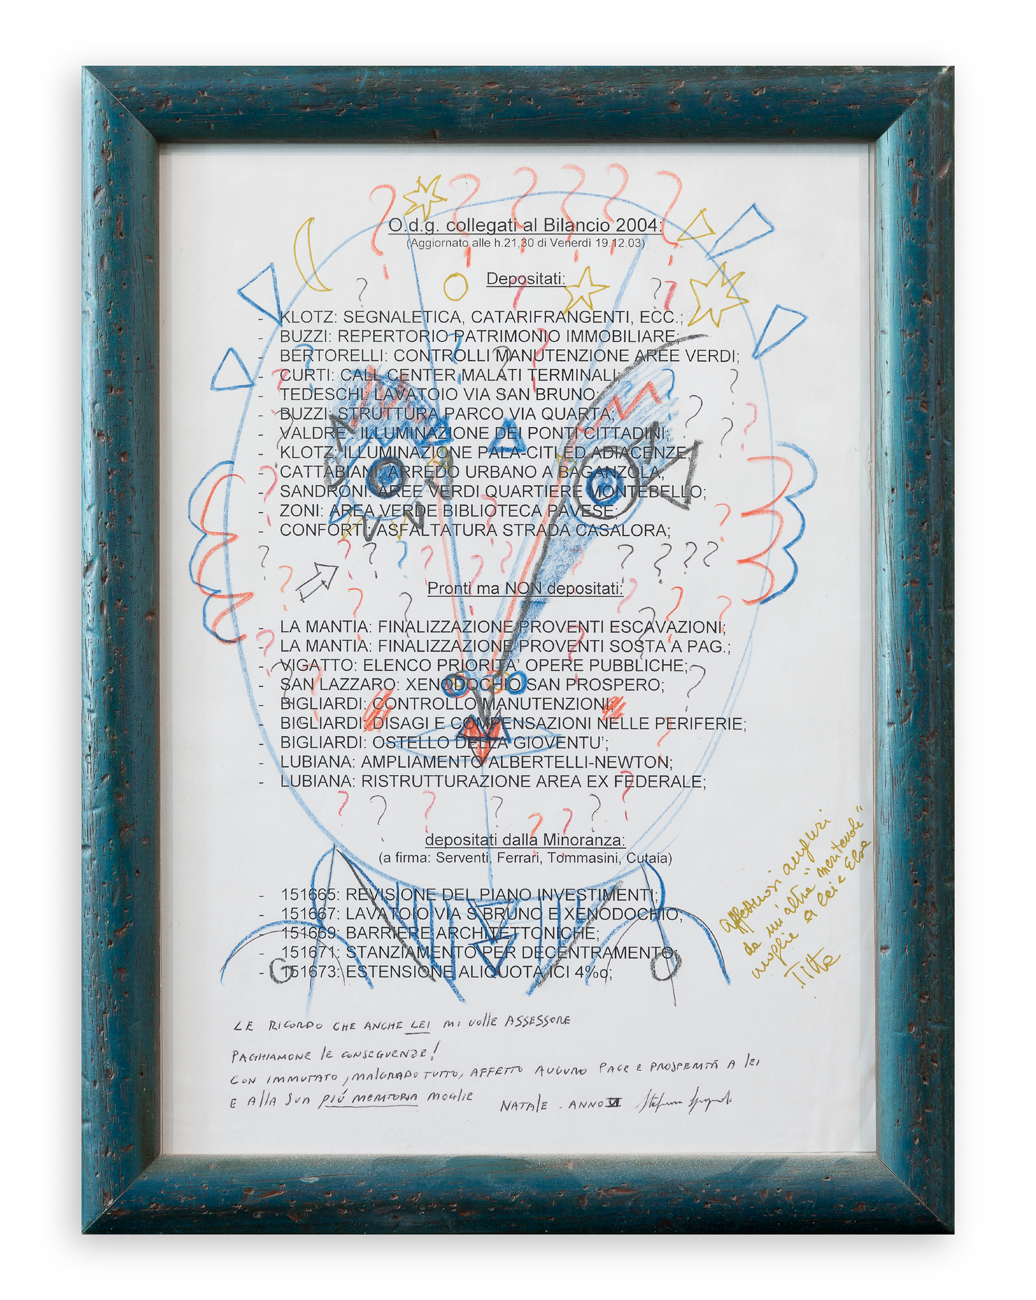 O.d.g. collegati al Bilancio 2004:
(Aggiornato alle h.21,30 di Venerdì 19.12.03)
Depositati:
- KLOTZ: SEGNALETICA, CATARIFRANGENTI, ECC.;
- BUZZI: REPERTORIO PATRIMONIO IMMOBILIARE;
- BERTORELLI: CONTROLLI MANUTENZIONE AREE VERDI;
- CURTI: CALL CENTER MALATI TERMINALI;
- TEDESCHI: LAVATOIO VIA SAN BRUNO;
- BUZZI: STRUTTURA PARCO VIA QUARTA;
- VALDRE': ILLUMINAZIONE DEI PONTI CITTADINI;
- KLOTZ: ILLUMINAZIONE PALA-CITI ED ADIACENZE;
- CATTABIANI: ARREDO URBANO A BAGANZOLA;
- SANDRONI: AREE VERDI QUARTIERE MONTEBELLO;
- ZONI: AREA VERDE BIBLIOTECA PAVESE;
- CONFORTI: ASFALTATURA STRADA CASALORA;
Pronti ma NON depositati:
- LA MANTIA: FINALIZZAZIONE PROVENTI ESCAVAZIONI;
- LA MANTIA: FINALIZZAZIONE PROVENTI SOSTA A PAG.;
- VIGATTO: ELENCO PRIORITA' OPERE PUBBLICHE;
- SAN LAZZARO: XENODOCHIO SAN PROSPERO;
- BIGLIARDI: CONTROLLO MANUTENZIONI;
- BIGLIARDI: DISAGI E COMPENSAZIONI NELLE PERIFERIE;
- BIGLIARDI: OSTELLO DELLA GIOVENTU';
- LUBIANA: AMPLIAMENTO ALBERTELLI-NEWTON;
- LUBIANA: RISTRUTTURAZIONE AREA EX FEDERALE;
depositati dalla Minoranza:
(a firma: Serventi, Ferrari, Tommasini, Cutaia)
- 151665: REVISIONE DEL PIANO INVESTIMENTI;
- 151667: LAVATOIO VIA S.BRUNO E XENODOCHIO;
- 151669: BARRIERE ARCHITETTONICHE;
- 151671: STANZIAMENTO PER DECENTRAMENTO;
- 151673: ESTENSIONE ALIQUOTA ICI 4‰;
affettuosi auguri
da un'altra "meritevole"
moglie a lei e Elsa
Titte
LE RICORDO CHE ANCHE LEI MI VOLLE ASSESSORE
PAGHIAMONE LE CONSEGUENZE!
CON IMMUTATO, MALGRADO TUTTO, AFFETTO AUGURO PACE E PROSPERITÀ A LEI
E ALLA SUA PIÚ MERITORIA MOGLIE NATALE . ANNO VI